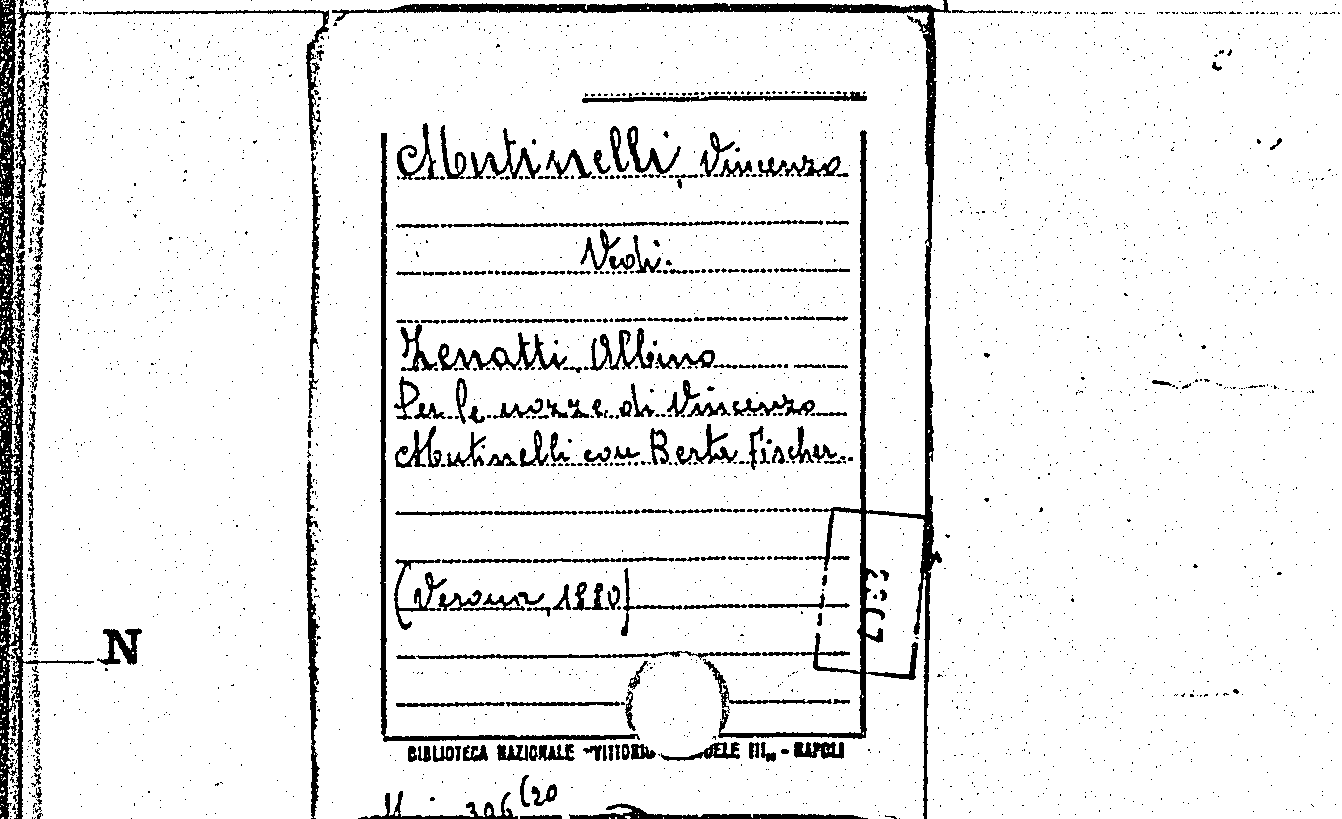 Mutinelli, Vincenzo
Vedi:
Zenatti, Albino
Per le nozze di Vincenzo
Mutinelli con Berta Fischer.
(Verona, 1880)
N
BIBLIOTECA NAZIONALE "VITTORIO UELE III„ - NAPOLI
396 (20